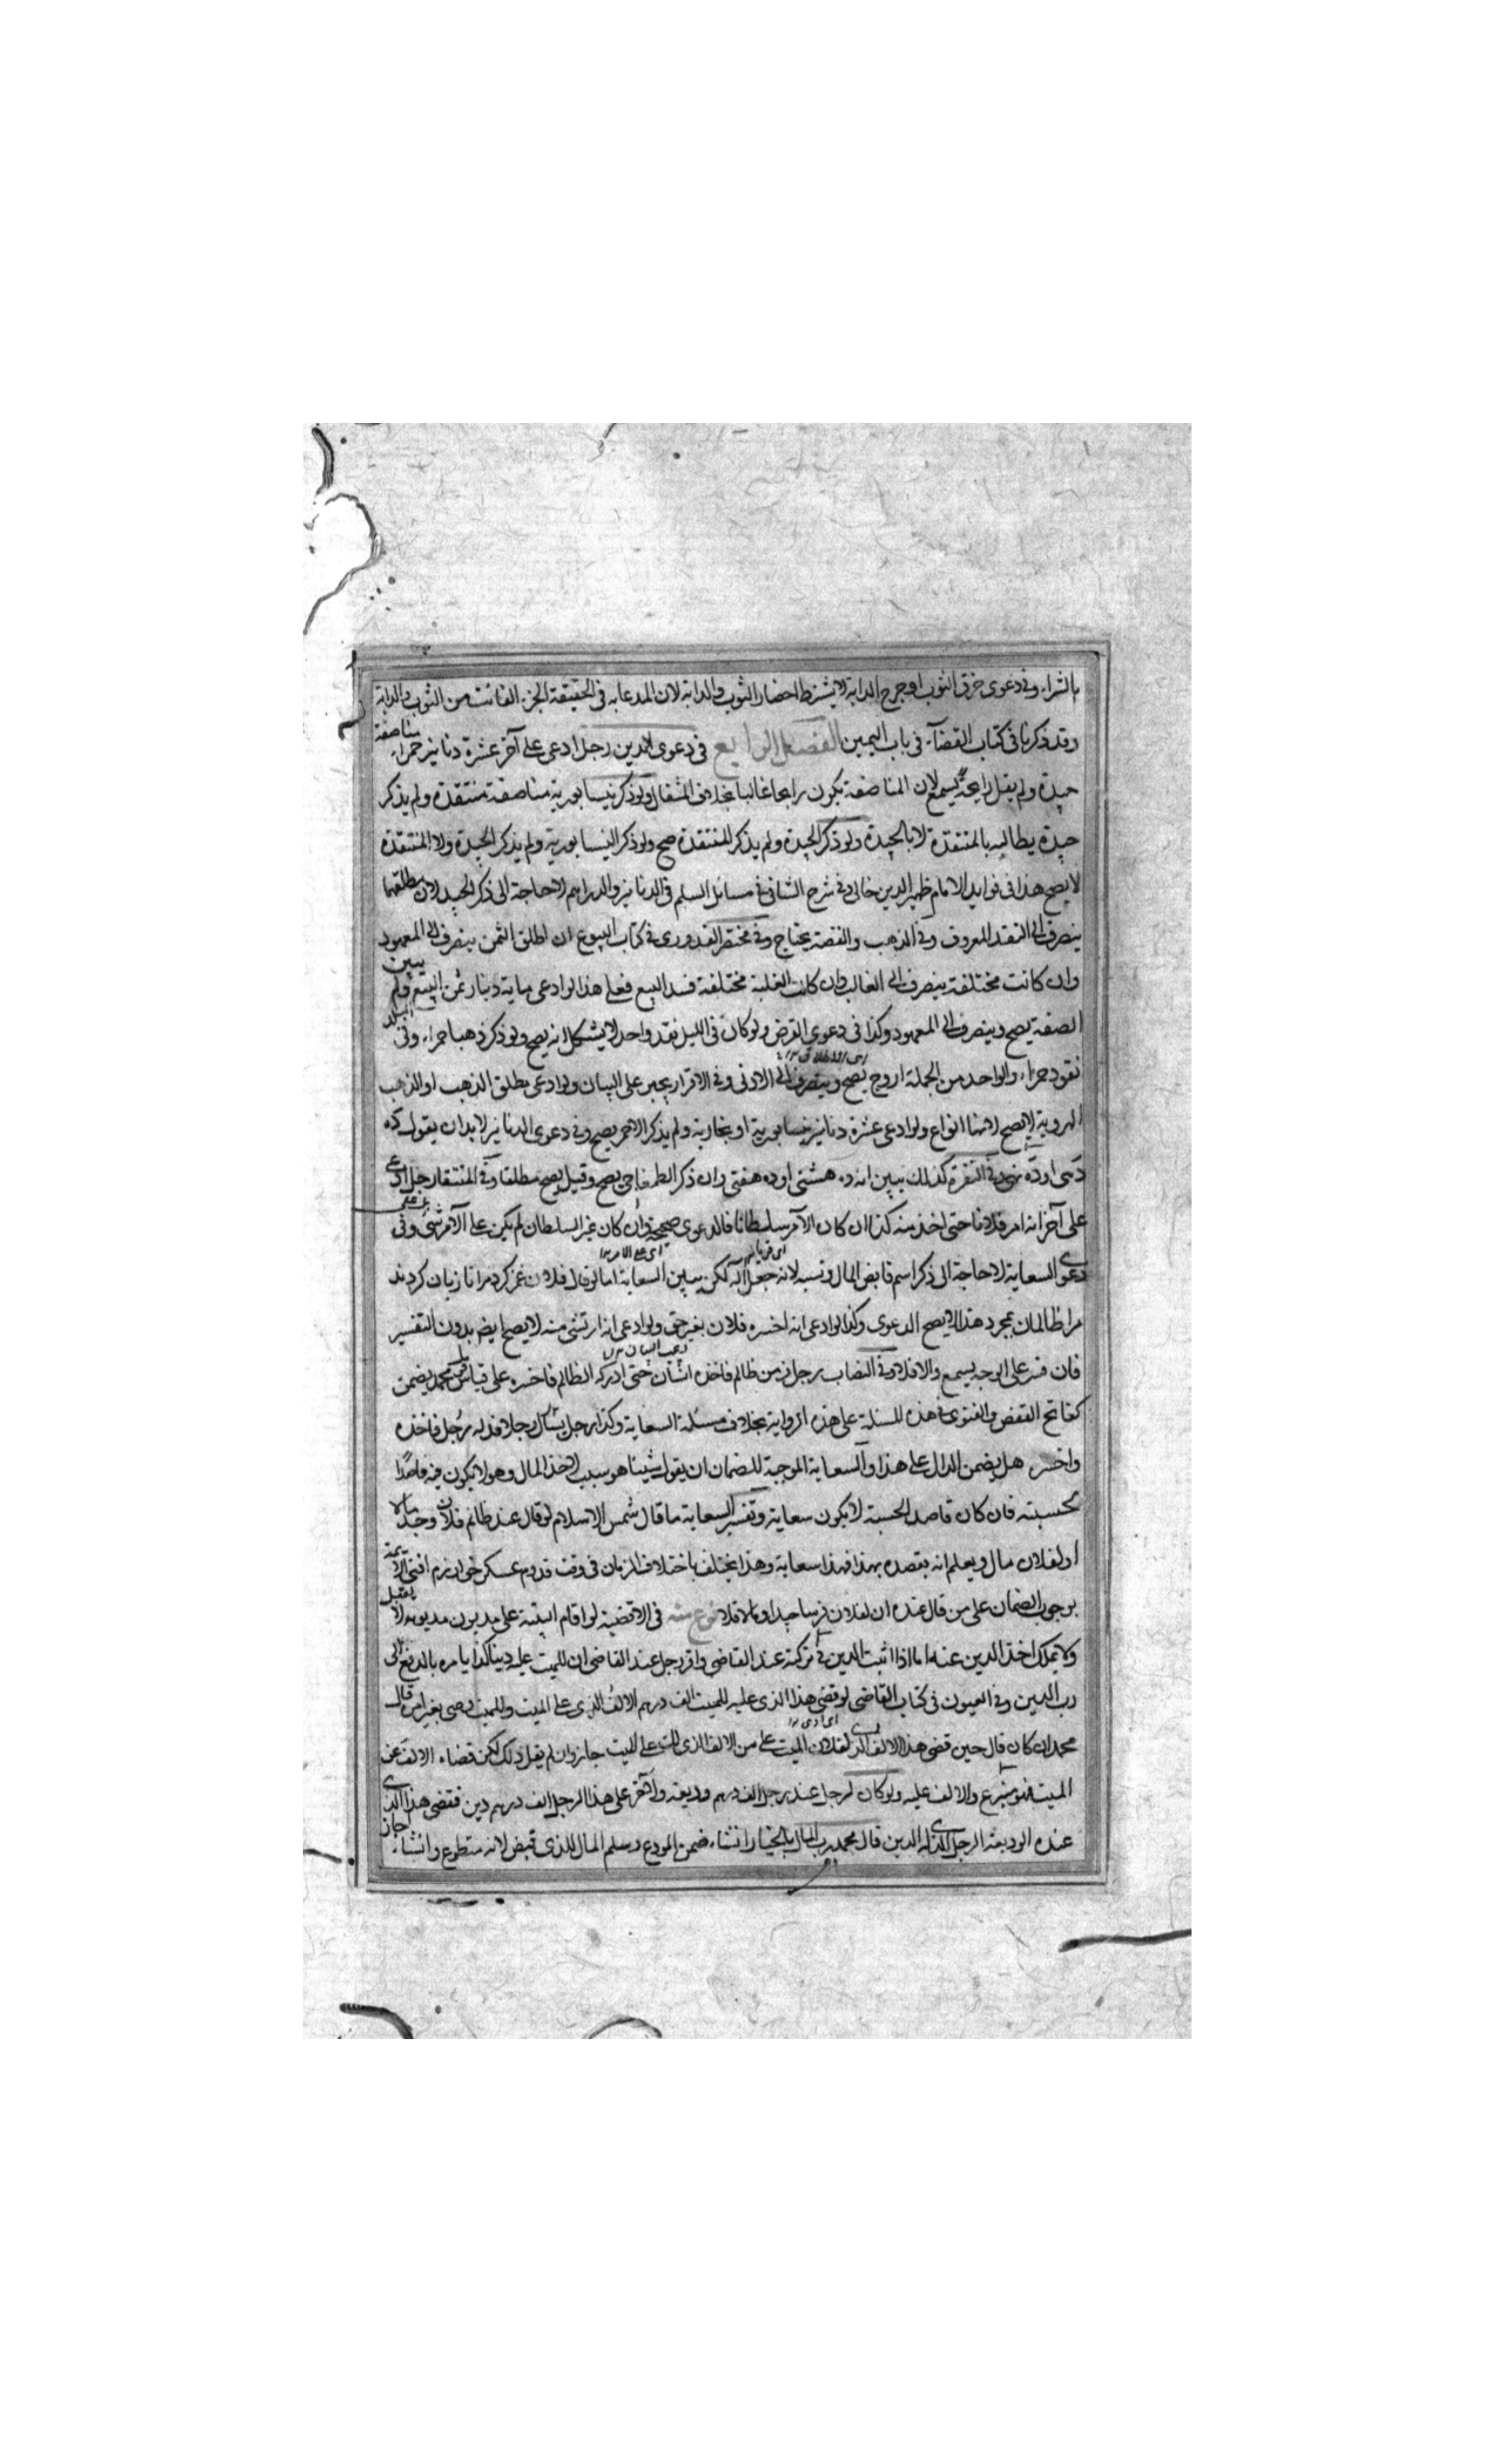 بالشراء وفي دعوى خرق الثوب او جرح الدابة لا يشترط احضار الثوب والدابة لان المدعا به في الحقيقة الجزء الفائت من الثوب والدابة
وقد ذكرنا في كتاب القضاء في باب اليمين الفصل الرابع في دعوى الدين رجل ادعى على آخر عشرة دنانير حمراء مناصفة
جيدة ولم يقل رايجة يسمع لان المناصفة يكون رايجا غالبا بخلاف المثقال ولو ذكر نيسابورية مناصفة منتقدة ولم يذكر
جيدة يطالبه بالمنتقدة لا بالجيدة ولو ذكر الجيدة ولم يذكر المنتقدة صح ولو ذكر النيسابورية ولم يذكر الجيدة ولا المنتقدة
لا يصح هذا في فوايد الامام ظهير الدين خالي وفي شرح الشافي في مسائل السلم في الدنانير والدراهم لا حاجة الى ذكر الجيد لان مطلقها
ينصرف الى النقد المعروف وفي الذهب والفضة يحتاج وفي مختصر القدوري في كتاب البيوع ان اطلق الثمن ينصرف الى المعهود
وان كانت مختلفة ينصرف الى الغالب وان كانت الغلبة مختلفة فسد البيع فعلى هذا لو ادعى ماية دينار ثمن البيع ولم يبين
الصفة يصح وينصرف الى المعهود وكذا في دعوى القرض ولو كان في البلد نقد واحد لا يشكل انه يصح ولو ذكر ذهبا حمراء وفي البلد
نقود حمراء والواحد من الجملة اروج يصح وينصرف الى الادنى وفي الاقرار يجبر على البيان ولو ادعى مطلق الذهب او الذهب
الهروية لا يصح لانها انواع ولو ادعى عشرة دنانير نيسابورية او بخارية ولم يذكر الاحمر يصح وفي دعوى الدنانير لا بد ان يقول ده
دهى او ده نهى وفي النقرة كذلك يبين انه ده هشتى او ده هفتى وان ذكر الطمغاجي يصح وقيل يصح مطلقا وفي المنتقا رجل ادعى
على آخر انه امر فلانا حتى اخذ منه كذا ان كان الآمر سلطانا فالدعوى صحيحة وان كان غير السلطان لم يكن على الآمر شئ وفي
دعوى السعاية لا حاجة الى ذكر اسم قابض المال ونسبه لانه جعل آلة لكن يبين السعاية اما لو قال فلان غمز كرد مرا تا زيان كردند
مرا ظالمان بمجرد هذا لا يصح الدعوى وكذا لو ادعى انه اخسره فلان بغير حق ولو ادعى انه ارتشى منه لا يصح ايضا بدون التفسير
فان فسر على الوجه يسمع والا فلا وفي النصاب رجل فر من ظالم فاخذه انسان حتى ادركه الظالم فاخسره على قياس قول محمد يضمن
كفاتح القفص والفتوى في هذه المسئلة على هذه الرواية بخلاف مسئلة السعاية وكذا رجل يسأل رجلا فدله رجل فاخذه
واخسره هل يضمن الدال على هذا والسعاية الموجبة للضمان ان يقول شيئا هو سبب لاخذ المال وهو لا يكون فيه قاصدا
لحسبته فان كان قاصد الحسبة لا يكون سعاية وتفسير السعاية ما قال شمس الاسلام لو قال عند ظالم فلان وجد مالا
او لفلان مال ويعلم انه يقصده بهذا فهذا سعاية وهذا يختلف باختلاف الزمان في وقت قدوم عسكر خوارزم افتى الائمة
بوجوب الضمان على من قال عنده ان لفلان فرسا جيدا والا فلا نوع منه في الاقضية لو اقام البينة على مديون مديونه لا يقبل
ولا يملك اخذ الدين عنه اما اذا اثبت الدين في تركة عند القاضي واقر رجل عند القاضي ان للميت عليه دينا كذا يامره بالدفع الى
رب الدين وفي العيون في كتاب القاضي لو قضى هذا الذي عليه للميت الف درهم الالف الذي على الميت وللميت وصي بغير امره قال
محمد ان كان قال حين قضى هذا الالف الذي لفلان الميت على من الالف الذي لك على الميت جاز وان لم يقل ذلك لكن قضاء الالف عن
الميت فهو متبرع والالف عليه ولو كان لرجل عند رجل الف درهم وديعة ولآخر على هذا الرجل الف درهم دين فقضى هذا الذي
عنده الوديعة الرجل الذي له الدين قال محمد رب المال بالخيار ان شاء ضمن المودع وسلم المال للذي قبض لانه متطوع وان شاء اجاز